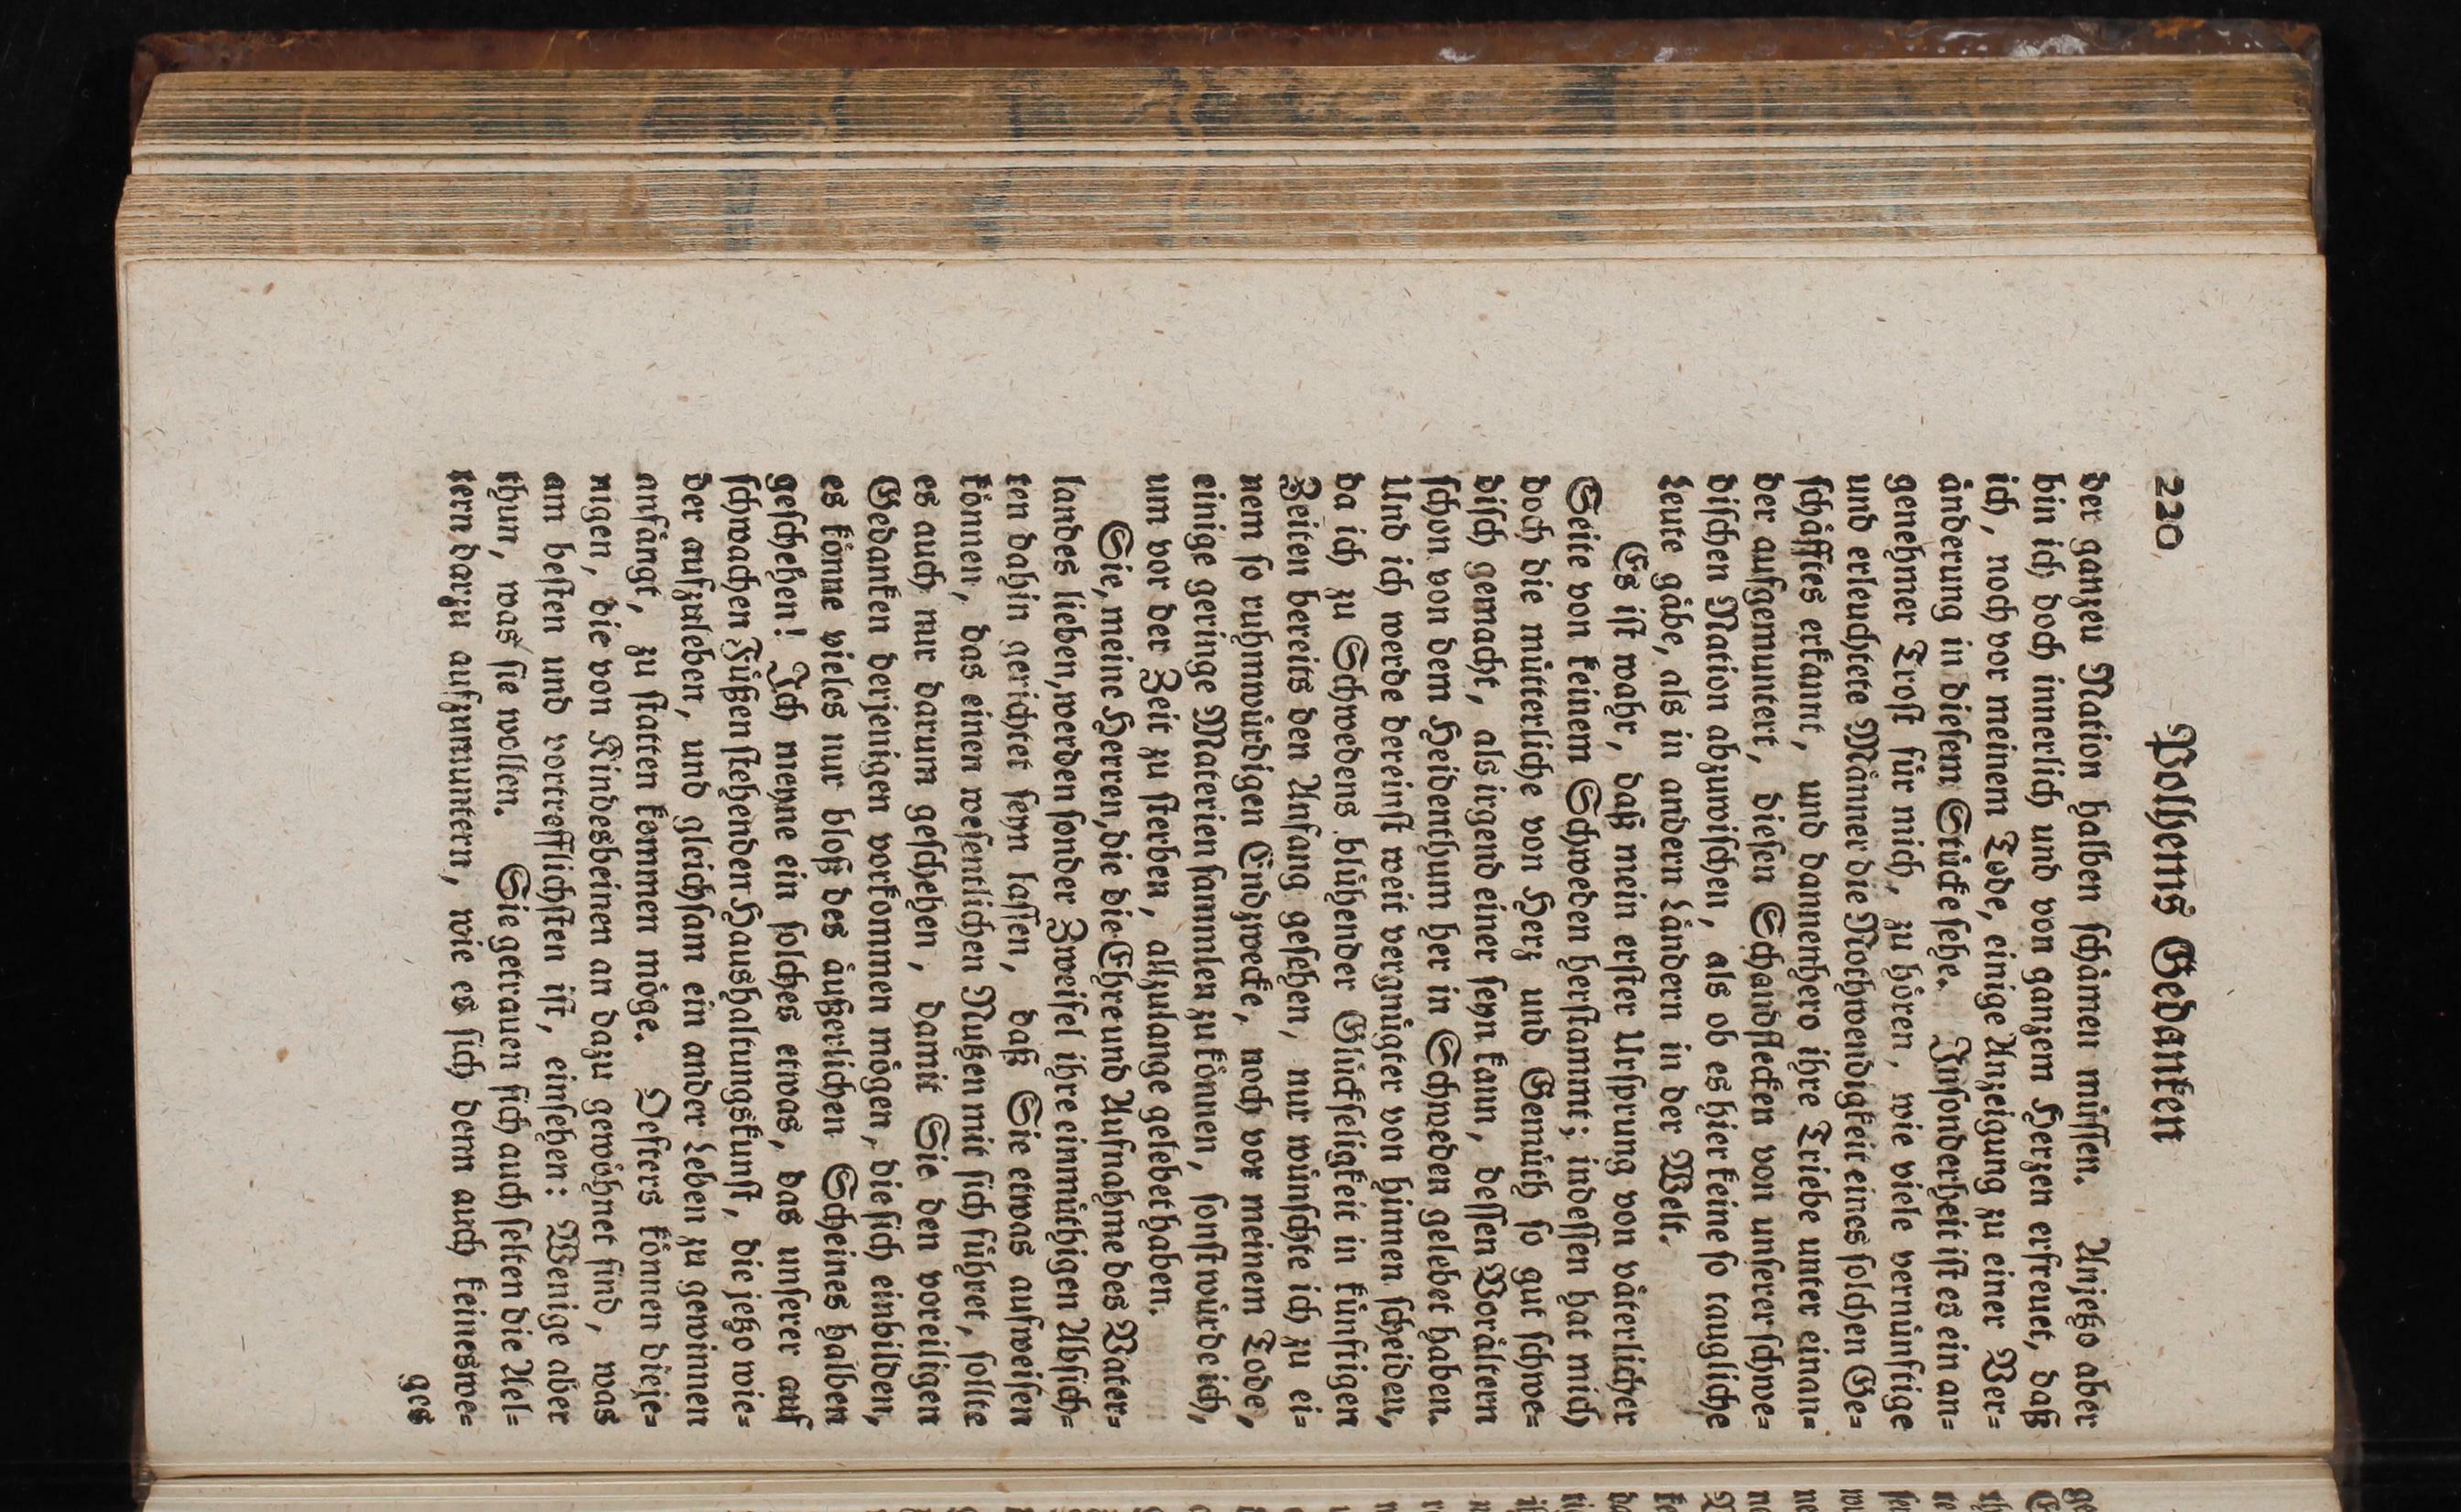 220 Polhems Gedanken
der ganzen Nation halben schämen müssen. Anjetzo aber
bin ich doch innerlich und von ganzem Herzen erfreuet, daß
ich, noch vor meinem Tode, einige Anzeigung zu einer Ver-
änderung in diesem Stücke sehe. Insonderheit ist es ein an-
genehmer Trost für mich, zu hören, wie viele vernünftige
und erleuchtete Männer die Nothwendigkeit eines solchen Ge-
schäfftes erkannt, und dannenhero ihre Triebe unter einan-
der aufgemuntert, diesen Schandflecken von unserer schwe-
dischen Nation abzuwischen, als ob es hier keine so taugliche
Leute gäbe, als in andern Ländern in der Welt.
Es ist wahr, daß mein erster Ursprung von väterlicher
Seite von keinem Schweden herstammt; indessen hat mich
doch die mütterliche von Herz und Gemüth so gut schwe-
disch gemacht, als irgend einer seyn kann, dessen Vorältern
schon von dem Heidenthum her in Schweden gelebet haben.
Und ich werde dereinst weit vergnügter von hinnen scheiden,
da ich zu Schwedens blühender Glückseligkeit in künftigen
Zeiten bereits den Anfang gesehen, nur wünschte ich zu ei-
nem so ruhmwürdigen Endzwecke, noch vor meinem Tode,
einige geringe Materien sammlen zu können, sonst würde ich,
um vor der Zeit zu sterben, allzulange gelebet haben.
Sie, meine Herren, die die Ehre und Aufnahme des Vater-
landes lieben, werden sonder Zweifel ihre einmüthigen Absich-
ten dahin gerichtet seyn lassen, daß Sie etwas aufweisen
können, das einen wesentlichen Nutzen mit sich führet, sollte
es auch nur darum geschehen, damit Sie den voreiligen
Gedanken derjenigen vorkommen mögen, die sich einbilden,
es könne vieles nur bloß des äußerlichen Scheines halben
geschehen! Ich meyne ein solches etwas, das unserer auf
schwachen Füßen stehenden Haushaltungskunst, die jetzo wie-
der aufzuleben, und gleichsam ein ander Leben zu gewinnen
anfängt, zu statten kommen möge. Oefters können dieje-
nigen, die von Kindesbeinen an dazu gewöhnet sind, was
am besten und vortrefflichsten ist, einsehen: Wenige aber
thun, was sie wollen. Sie getrauen sich auch selten die Ael-
tern darzu aufzumuntern, wie es sich denn auch keineswe-
ges